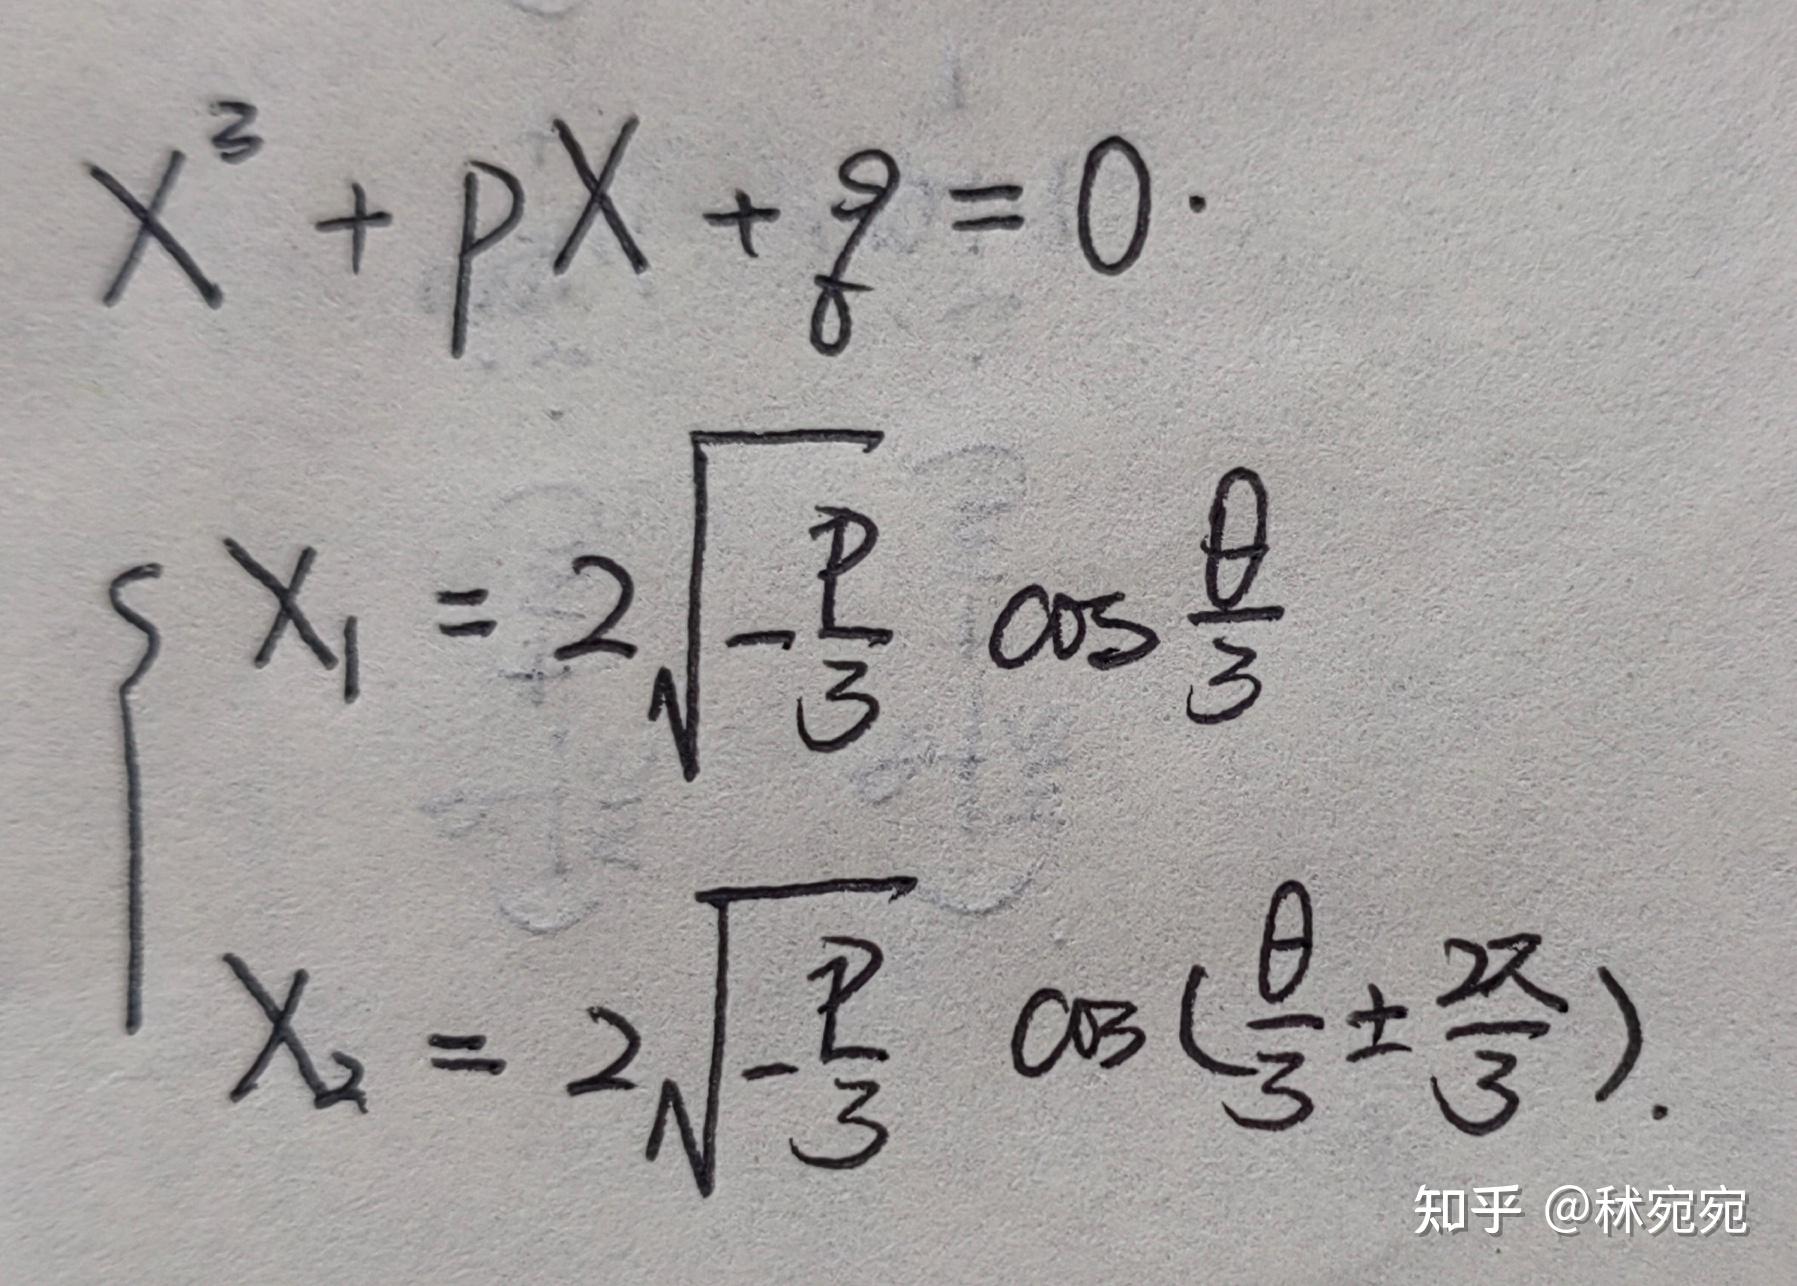 X³ + pX + q = 0.
X₁ = 2√(-P/3) cos θ/3
X₂ = 2√(-P/3) cos(θ/3 ± 2π/3).
知乎 @秫宛宛